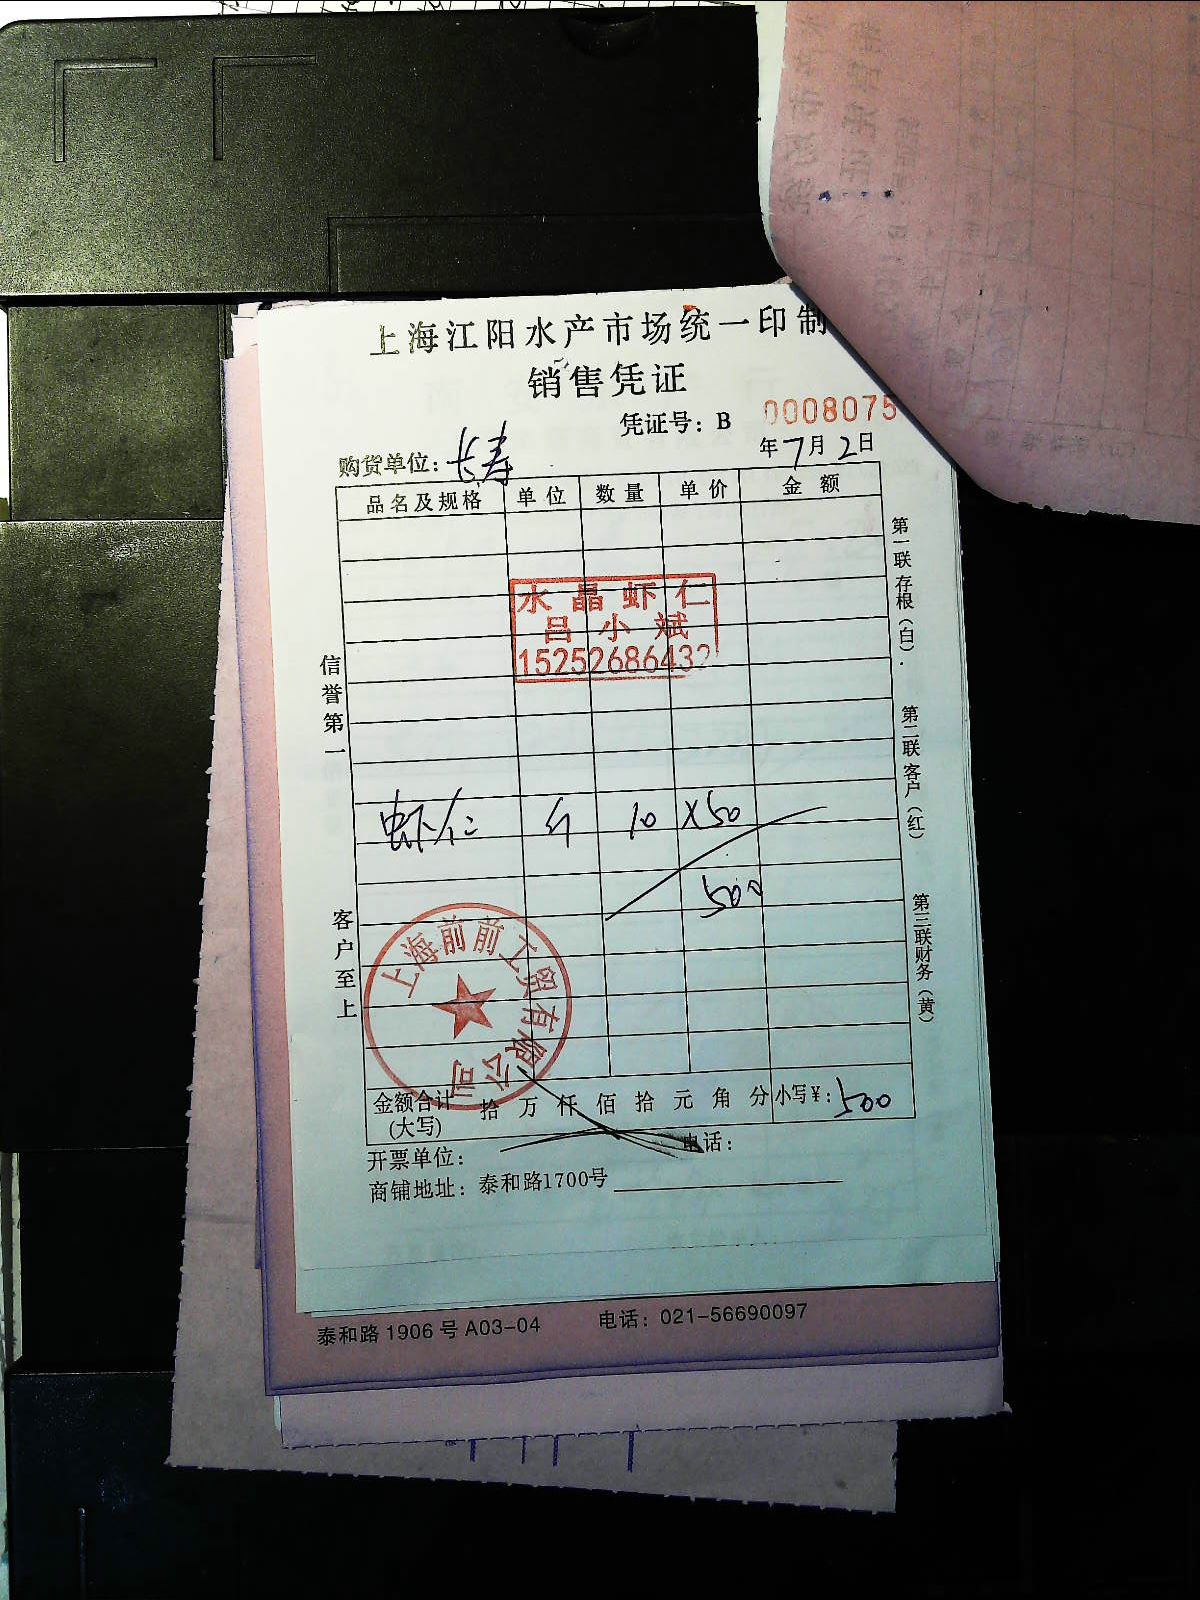 上海江阳水产市场统一印制
销售凭证
凭证号：B 0008075
购货单位：长寿
年7月2日
品名及规格 单位 数量 单价 金额
水晶虾仁
吕小斌
15252686432
虾仁 斤 10 X50
500
信誉第一
客户至上
第一联存根（白）．
第二联客户（红）
第三联财务（黄）
上海前前工贸有限公司
金额合计(大写) 拾 万 仟 佰 拾 元 角 分 小写¥：500
开票单位： 电话：
商铺地址：泰和路1700号
泰和路 1906 号 A03-04 电话：021-56690097